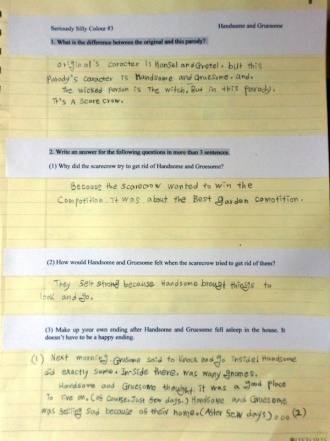 Seriously Silly Colour #3 Handsome and Gruesome
1. What is the difference between the original and this parody?
original's caracter is Hansel and Gretel. but this
Parody's caracter is Handsome and Gruesome. and.
The wicked person is The witch. But in this parody.
It's A scare crow.
2. Write an answer for the following questions in more than 3 sentences.
(1) Why did the scarecrow try to get rid of Handsome and Gruesome?
Because the scarecrow wanted to win the
Compotition. It was about the Best garden comotition.
(2) How would Handsome and Gruesome felt when the scarecrow tried to get rid of them?
They felt strong because Handsome brought things to
look and go.
(3) Make up your own ending after Handsome and Gruesome fell asleep in the house. It
doesn't have to be a happy ending.
(1) Next morning, Grusome said to knock and go inside! Handsome
did exactly same. Inside there, was many gnomes.
Handsome and Gruesome thought it was a good place
To live on. (Of course. Just few days.) Handsome and Gruesome
was felling sad because of their home. (After few days)... (2)